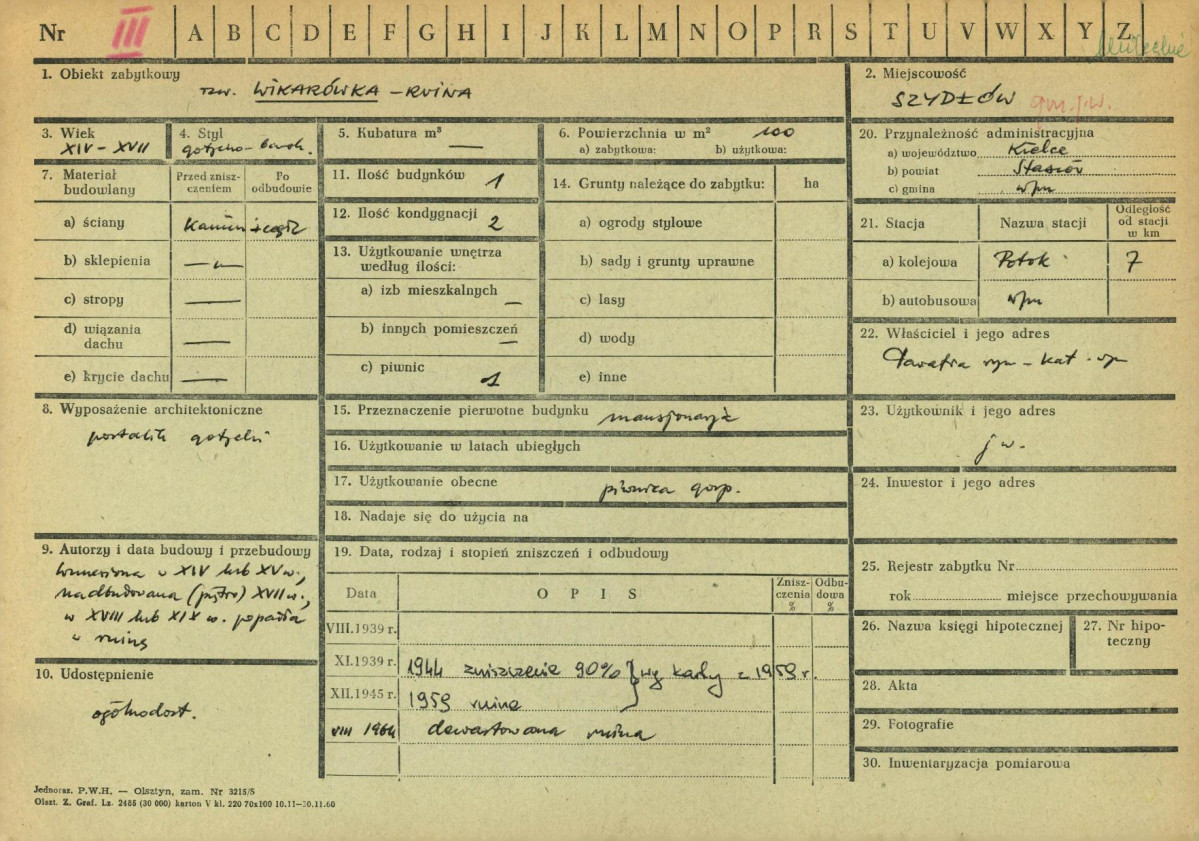 Nr III A B C D E F G H I J K L M N O P R S T U V W X Y Z
1. Obiekt zabytkowy
tzw. WIKARÓWKA - RUINA
2. Miejscowość
SZYDŁÓW gm. j.w.
3. Wiek
XIV - XVII
4. Styl
gotycko-barok.
5. Kubatura m³
—
6. Powierzchnia w m² 100
a) zabytkowa: b) użytkowa:
20. Przynależność administracyjna
a) województwo Kielce
b) powiat Staszów
c) gmina w/m
7. Materiał budowlany
Przed zniszczeniem
Po odbudowie
a) ściany kamień i cegła
b) sklepienia — " —
c) stropy —
d) wiązania dachu —
e) krycie dachu —
11. Ilość budynków 1
12. Ilość kondygnacji 2
13. Użytkowanie wnętrza
według ilości:
a) izb mieszkalnych —
b) innych pomieszczeń —
c) piwnic 1
14. Grunty należące do zabytku: ha
a) ogrody stylowe
b) sady i grunty uprawne
c) lasy
d) wody
e) inne
21. Stacja Nazwa stacji Odległość od stacji w km
a) kolejowa Potok 7
b) autobusowa w/m
22. Właściciel i jego adres
rzym-kat.
8. Wyposażenie architektoniczne
portalik gotycki
15. Przeznaczenie pierwotne budynku mansjonaria
16. Użytkowanie w latach ubiegłych
17. Użytkowanie obecne piwnica gosp.
18. Nadaje się do użycia na
23. Użytkownik i jego adres
j w.
24. Inwestor i jego adres
9. Autorzy i data budowy i przebudowy
wzniesiona w XIV lub XV w.,
nadbudowana (piętro) XVII w.,
w XVIII lub XIX w. popadła
w ruinę
10. Udostępnienie
ogólnodost.
19. Data, rodzaj i stopień zniszczeń i odbudowy
Data OPIS Zniszczenia % Odbudowa %
VIII.1939 r.
XI.1939 r. 1944 zniszczenie 90% } wg karty z 1959 r.
XII.1945 r. 1959 ruina
VIII 1964 dewastowana ruina
25. Rejestr zabytku Nr
rok miejsce przechowywania
26. Nazwa księgi hipotecznej
27. Nr hipoteczny
28. Akta
29. Fotografie
30. Inwentaryzacja pomiarowa
Jednoraz. P.W.H. — Olsztyn, zam. Nr 3215/5
Olszt. Z. Graf. Lz. 2486 (30 000) karton V kl. 220 70x100 10.11—30.11.60